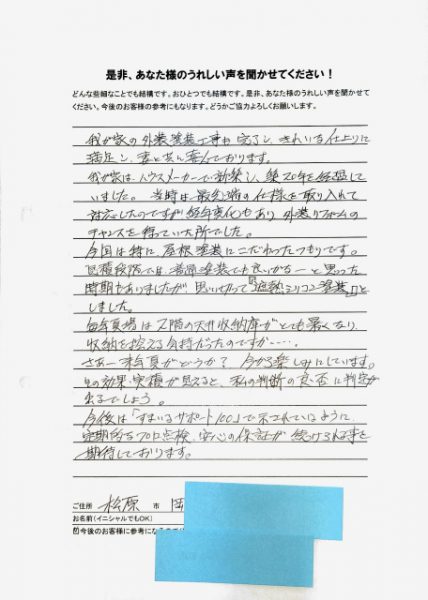 是非、あなた様のうれしい声を聞かせてください！
どんな些細なことでも結構です。おひとつでも結構です。是非、あなた様のうれしい声を聞かせて
ください。今後のお客様の参考にもなります。どうかご協力よろしくお願いします。
我が家の外装塗装工事も完了し、きれいな仕上りに
満足し、妻と共に喜んでおります。
我が家はハウスメーカーで新築し、築20年を経過して
いました。当時は最先端の仕様を取り入れて
対応したのですが経年変化もあり外装リフォームの
チャンスを待っていた所でした。
今回は特に屋根塗装にこだわったつもりです。
見積段階では、普通塗装でも良いかなーと思った
時期もありましたが思い切って「遮熱シリコン塗装」と
しました。
毎年夏場は2階の天井収納庫がとても暑くなり
収納を控える気持だったのですが・・・・
さあー来年夏がどうか？今から楽しみにしています。
その効果・実積が見えると、私の判断の良否に判定が
出るでしょう。
今後は「すまいるサポート100」で示されているように
定期的なプロ点検、安心の保証が続けられる事を
期待しております。
ご住所 松原 市 岡
お名前(イニシャルでもOK)
今後のお客様に参考にな